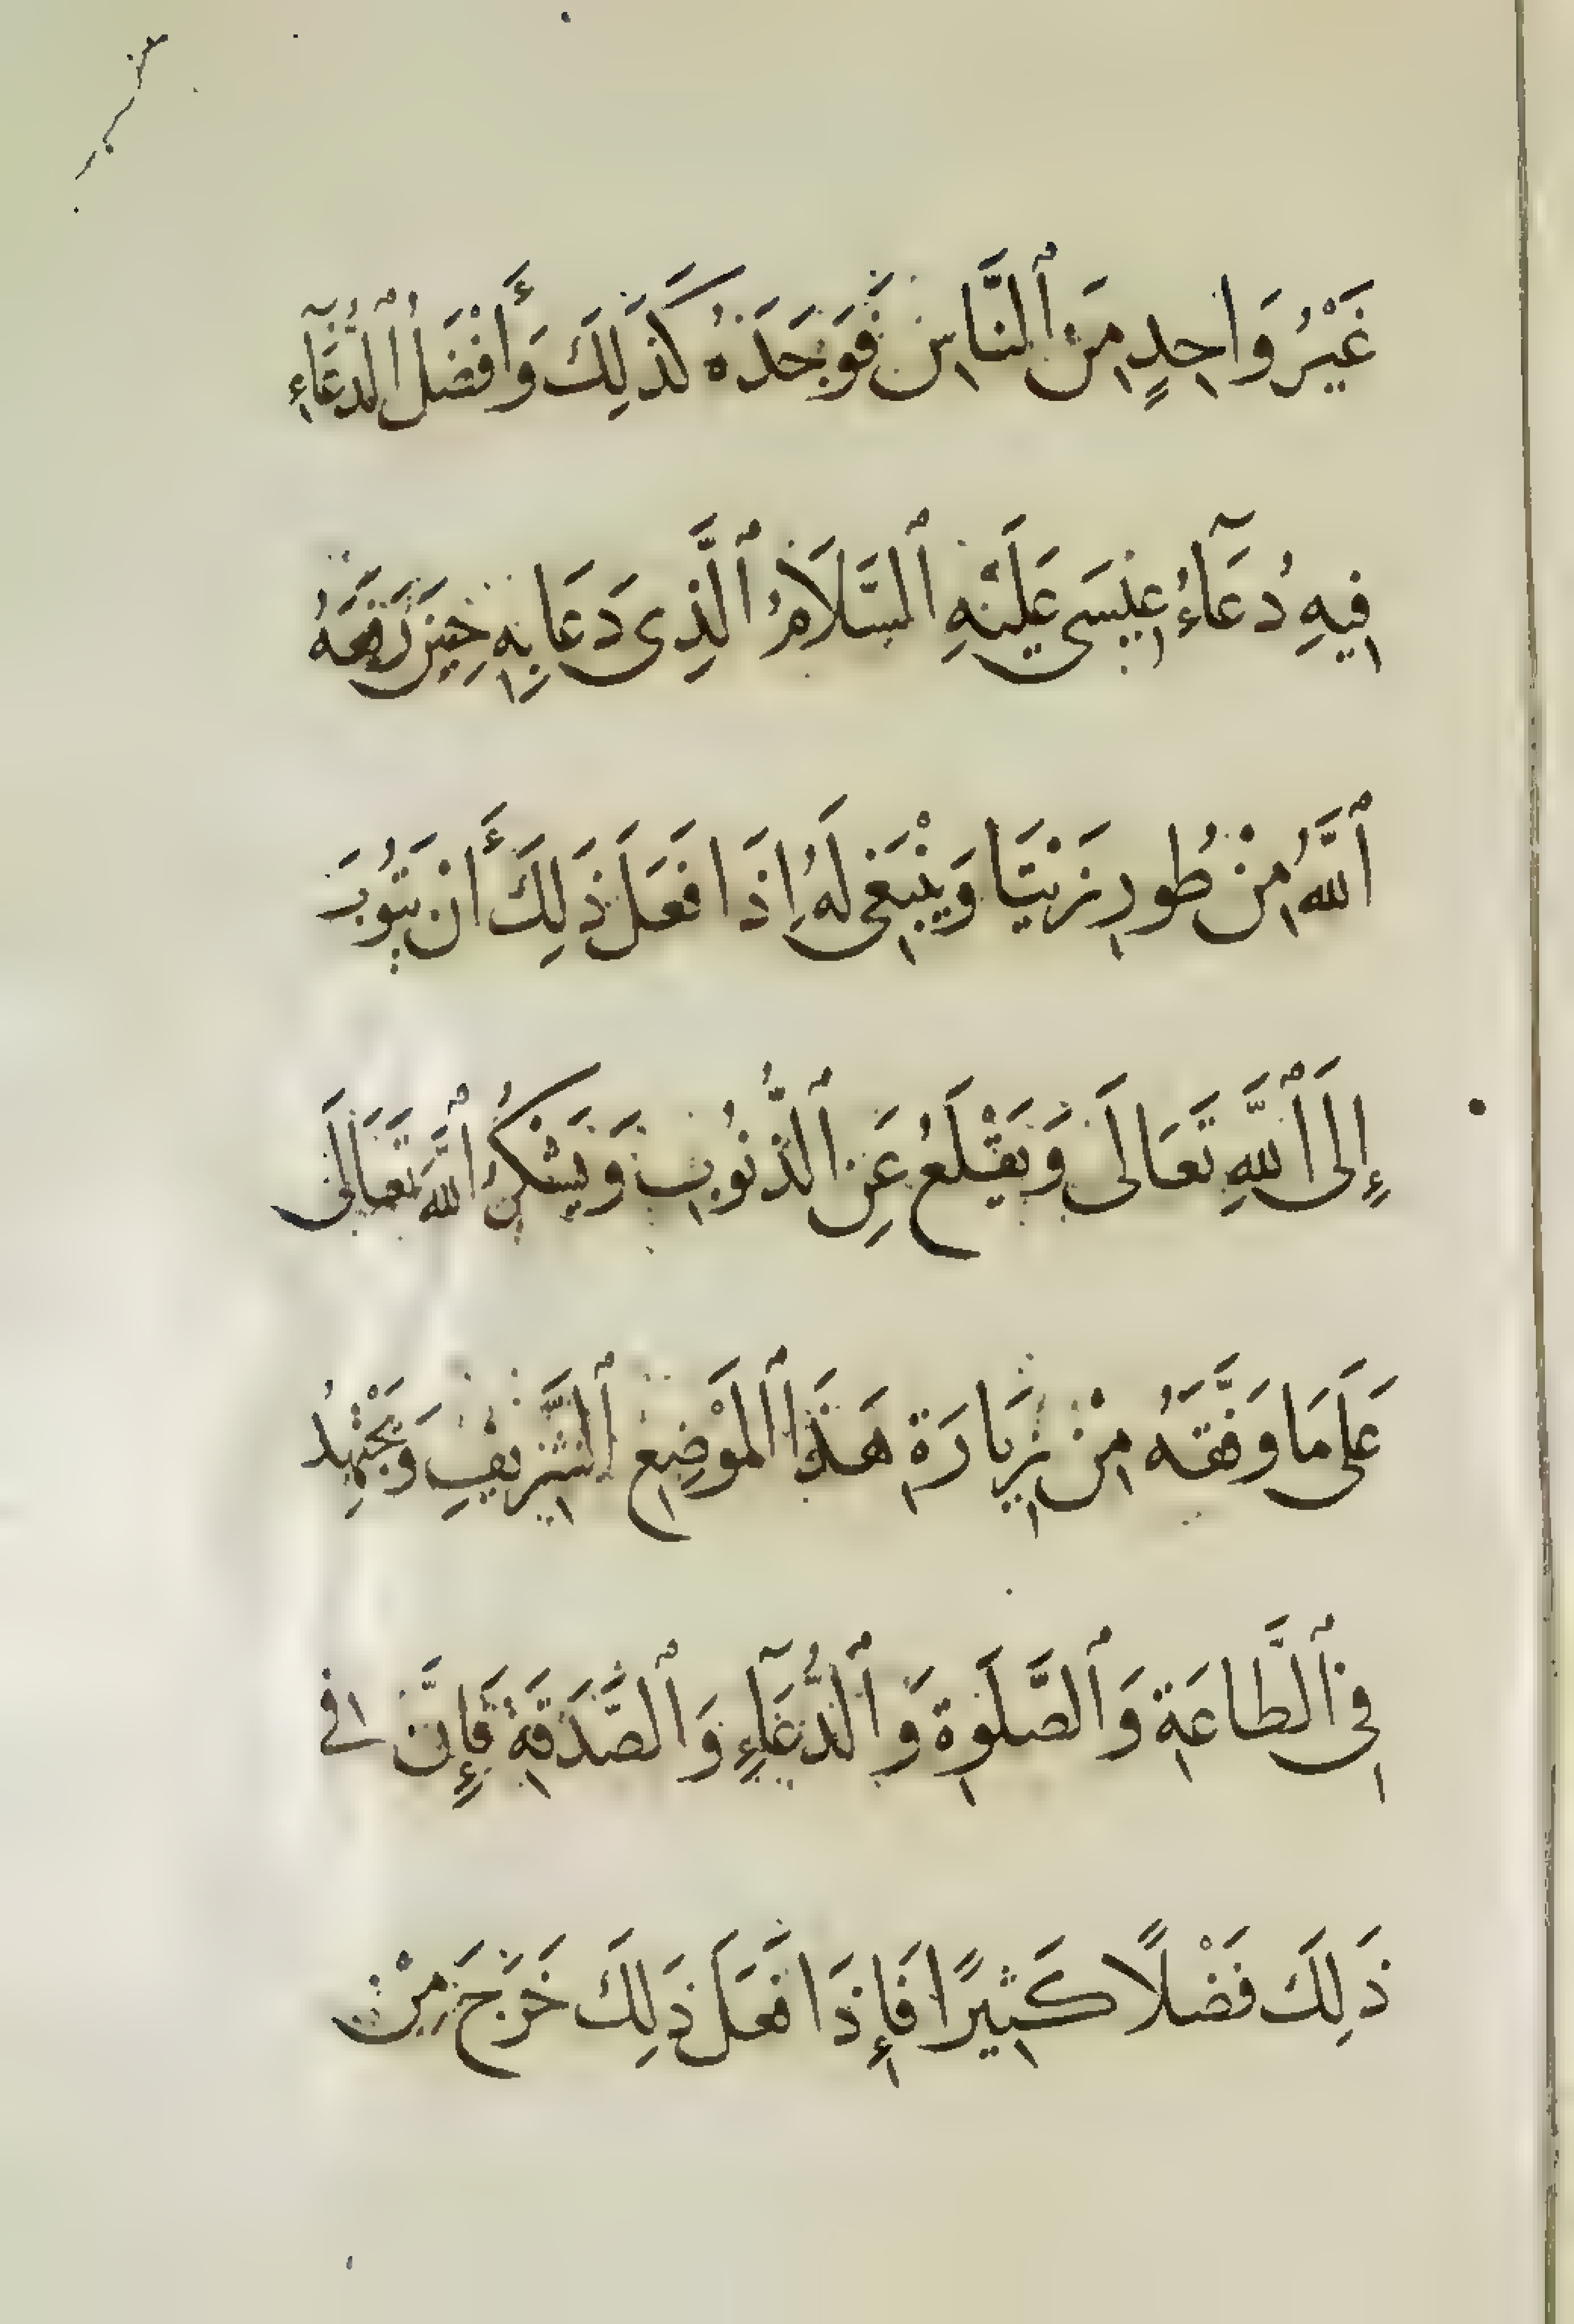 غَيْرُ وَاحِدٍ مِنَ ٱلنَّاسِ فَوَجَدَهُ كَذَلِكَ وَأَفْضَلُ ٱلدُّعَآءِ
فِيهِ دُعَآءُ عِيسَى عَلَيْهِ ٱلسَّلَامُ ٱلَّذِى دَعَا بِهِ حِينَ رَفَعَهُ
ٱللَّهُ مِنْ طُورِ زَيْتَا وَيَنْبَغِى لَهُ إِذَا فَعَلَ ذَلِكَ أَنْ يَتُوبَ
إِلَى ٱللَّهِ تَعَالَى وَيَقْلَعُ عَنِ ٱلذُّنُوبِ وَيَشْكُرُ ٱللَّهَ تَعَالَى
عَلَى مَا وَفَّقَهُ مِنْ زِيَارَةِ هَذَا ٱلْمَوْضِعِ ٱلشَّرِيفِ وَيَجْتَهِدُ
فِى ٱلطَّاعَةِ وَٱلصَّلَوةِ وَٱلدُّعَآءِ وَٱلصَّدَقَةِ فَإِنَّ فِى
ذَلِكَ فَضْلًا كَثِيرًا فَإِذَا فَعَلَ ذَلِكَ خَرَجَ مِنْ